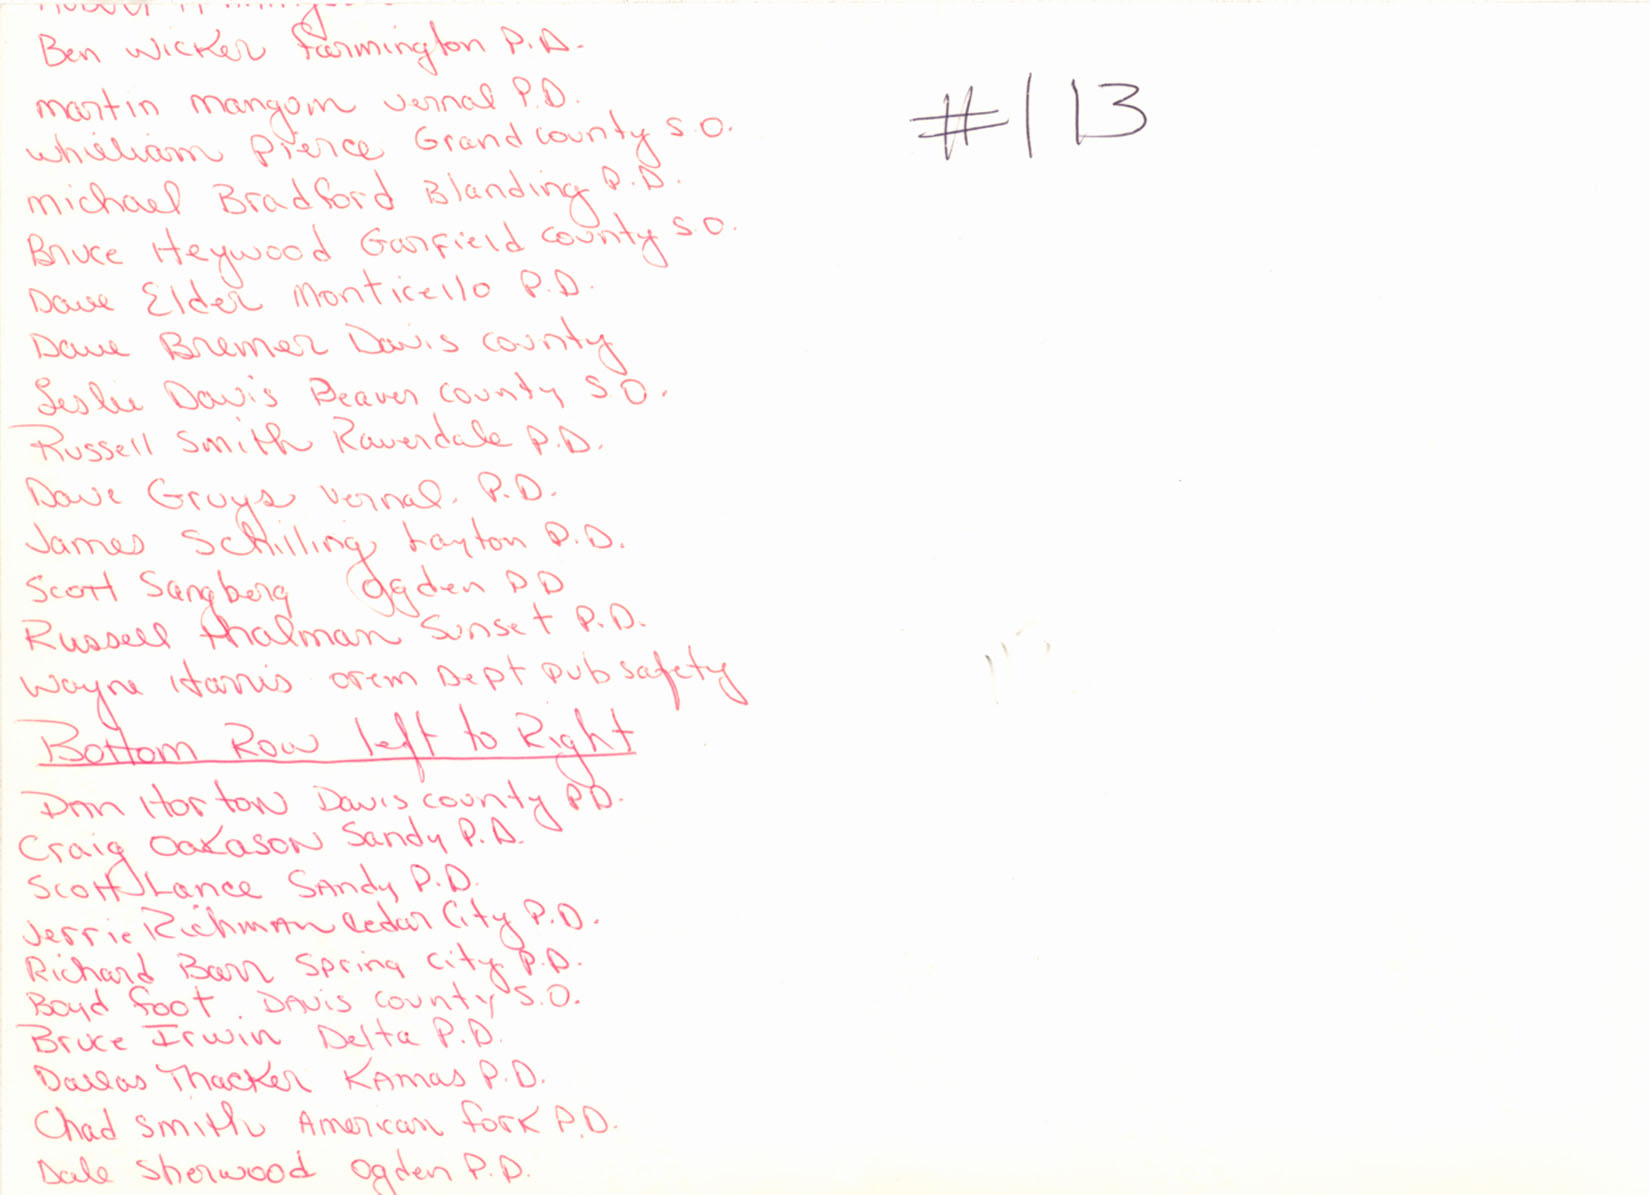 Ben Wicker Farmington P.D.
#113
martin mangom vernal P.D.
whilliam Pierce Grand county S.O.
michael Bradford Blanding P.D.
Bruce Heywood Garfield county S.O.
Dave Elder Monticello P.D.
Dave Bremer Davis county
Leslie Davis Beaver county S.O.
Russell Smith Raverdale P.D.
Dave Gruys vernal. P.D.
James Schilling Layton P.D.
Scott Sangberg Ogden PD
Russell thalman Sunset P.D.
Wayne Harris orem Dept pub safety
Bottom Row left to Right
Dan Horton Davis county P.D.
Craig Oakason Sandy P.D.
Scott Lance SAndy P.D.
Jerrie RichmAn Cedar City P.D.
Richard Barr Spring City P.D.
Boyd foot. DAvis county S.O.
Bruce Irwin Delta P.D.
Dallas Thacker KAmas P.D.
Chad Smith American fork P.D.
Dale Sherwood Ogden P.D.